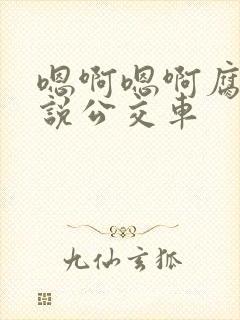 嗯啊嗯啊腐
說公交車
九仙玄狐